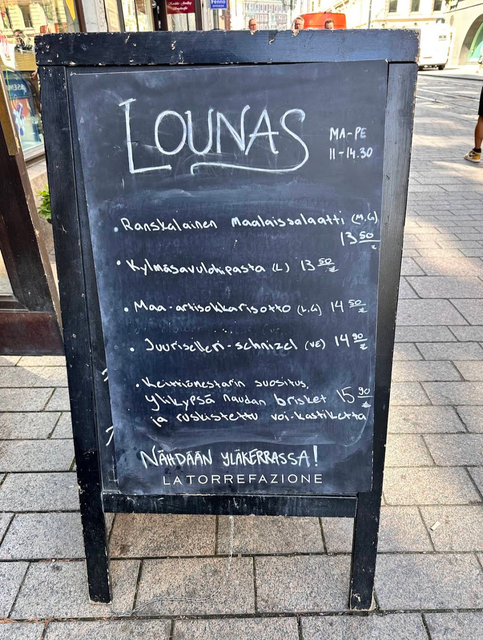 LOUNAS
MA-PE
11-14.30
• Ranskalainen maalaissalaatti (M,G)
13 50 €
• Kylmäsavulohipasta (L) 13 50 €
• Maa-artisokkarisotto (L,G) 14 50 €
• Juuriselleri-schnizel (VE) 14 90 €
• Keittiömestarin suositus,
ylikypsä naudan brisket 15 90 €
ja ruskistettu voi-kastiketta
NÄHDÄÄN YLÄKERRASSA!
LA TORREFAZIONE